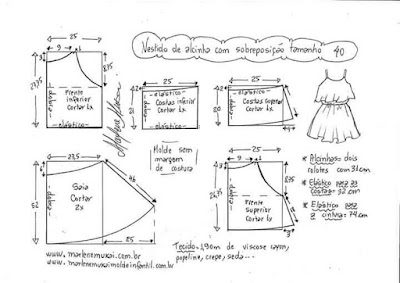 Vestido de alcinha com sobreposição tamanho 40
25
9
3
8,75
23,5
dobra
Frente
inferior
Cortar 1x
elástico
25
elástico
dobra
Costas inferior
Cortar 1x
elástico
21
25
elástico
dobra
Costas superior
Cortar 1x
20
Marlene Mukai
Molde sem
margem
de costura
23,5
46
Saia
Cortar
2x
52
25
25
9
3
8,75
dobra
Frente
Superior
Cortar 1x
3
* Alcinhas: dois
rolotes com 31cm
* Elástico para as
costas: 32 cm
* Elástico para
a cintura: 74cm
Tecido: 1,90m de viscose rayon,
popeline, crepe, seda...
www.marlenemukai.com.br
www.marlenemukaimoldeinfantil.com.br